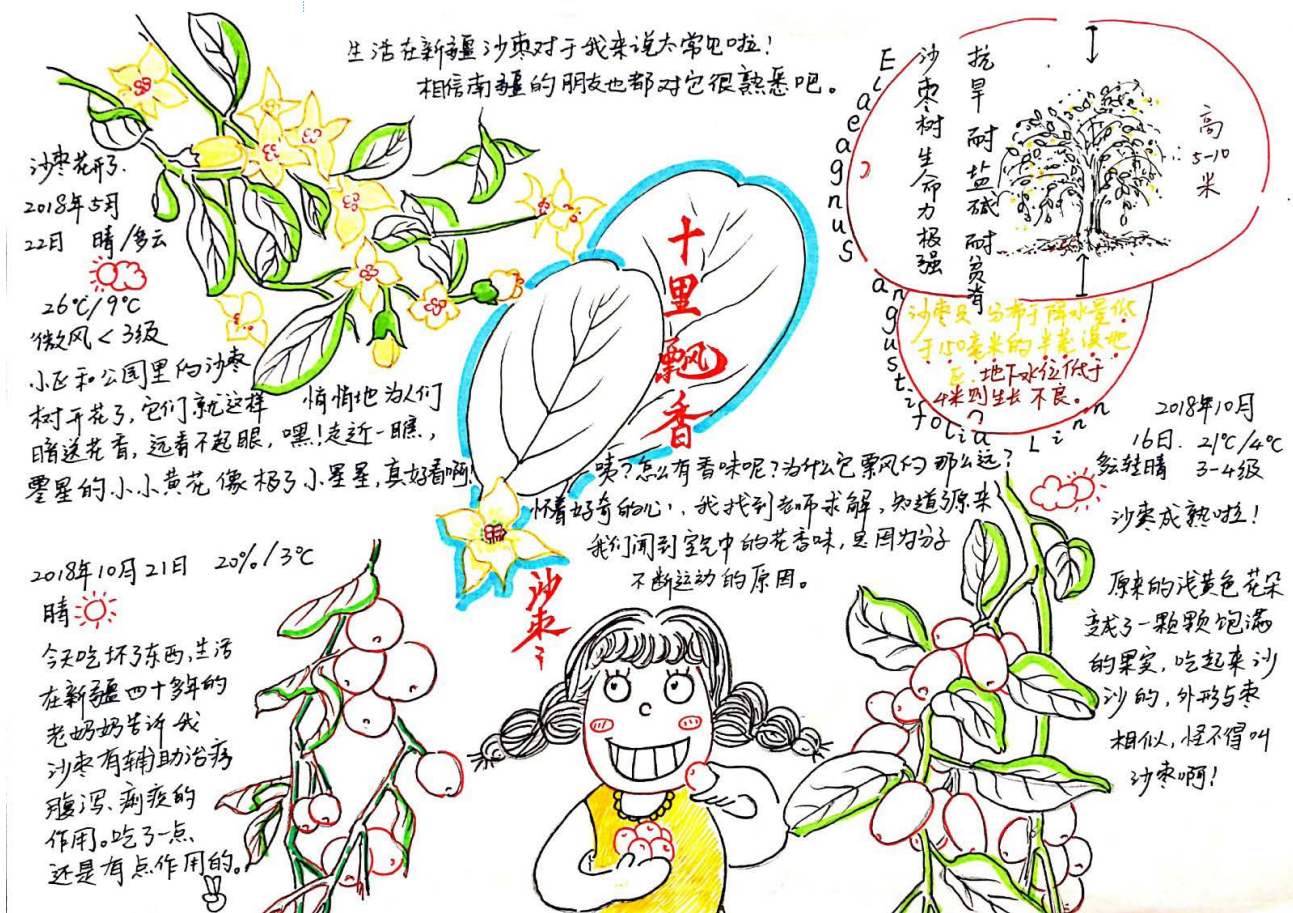 生活在新疆沙枣对于我来说太常见啦！
相信南疆的朋友也都对它很熟悉吧。
沙枣花开了.
2018年5月
22日 晴/多云
26℃/9℃
微风<3级
小区和公园里的沙枣
树开花了,它们就这样 悄悄地为人们
暗送花香,远看不起眼,嘿!走近一瞧,
零星的小小黄花像极了小星星,真好看啊!
十里飘香
沙枣
Elaeagnus angustifolia Linn
沙枣树生命力极强
抗旱耐盐碱耐贫瘠
高
5-10
米
沙枣只分布于降水量低
于150毫米的半荒漠地
区.地下水位低于
4米则生长不良。
咦?怎么有香味呢?为什么它飘的那么远?
怀着好奇的心,我找到老师求解,知道了原来
我们闻到空气中的花香味,是因为分子
不断运动的原因。
2018年10月
16日. 21℃/4℃
多云转晴 3-4级
沙枣成熟啦!
原来的浅黄色花朵
变成了一颗颗饱满
的果实,吃起来沙
沙的,外形与枣
相似,怪不得叫
沙枣啊!
2018年10月21日 20%/3℃
晴
今天吃坏了东西,生活
在新疆四十多年的
老奶奶告诉我
沙枣有辅助治疗
腹泻、痢疾的
作用。吃了一点
还是有点作用的。